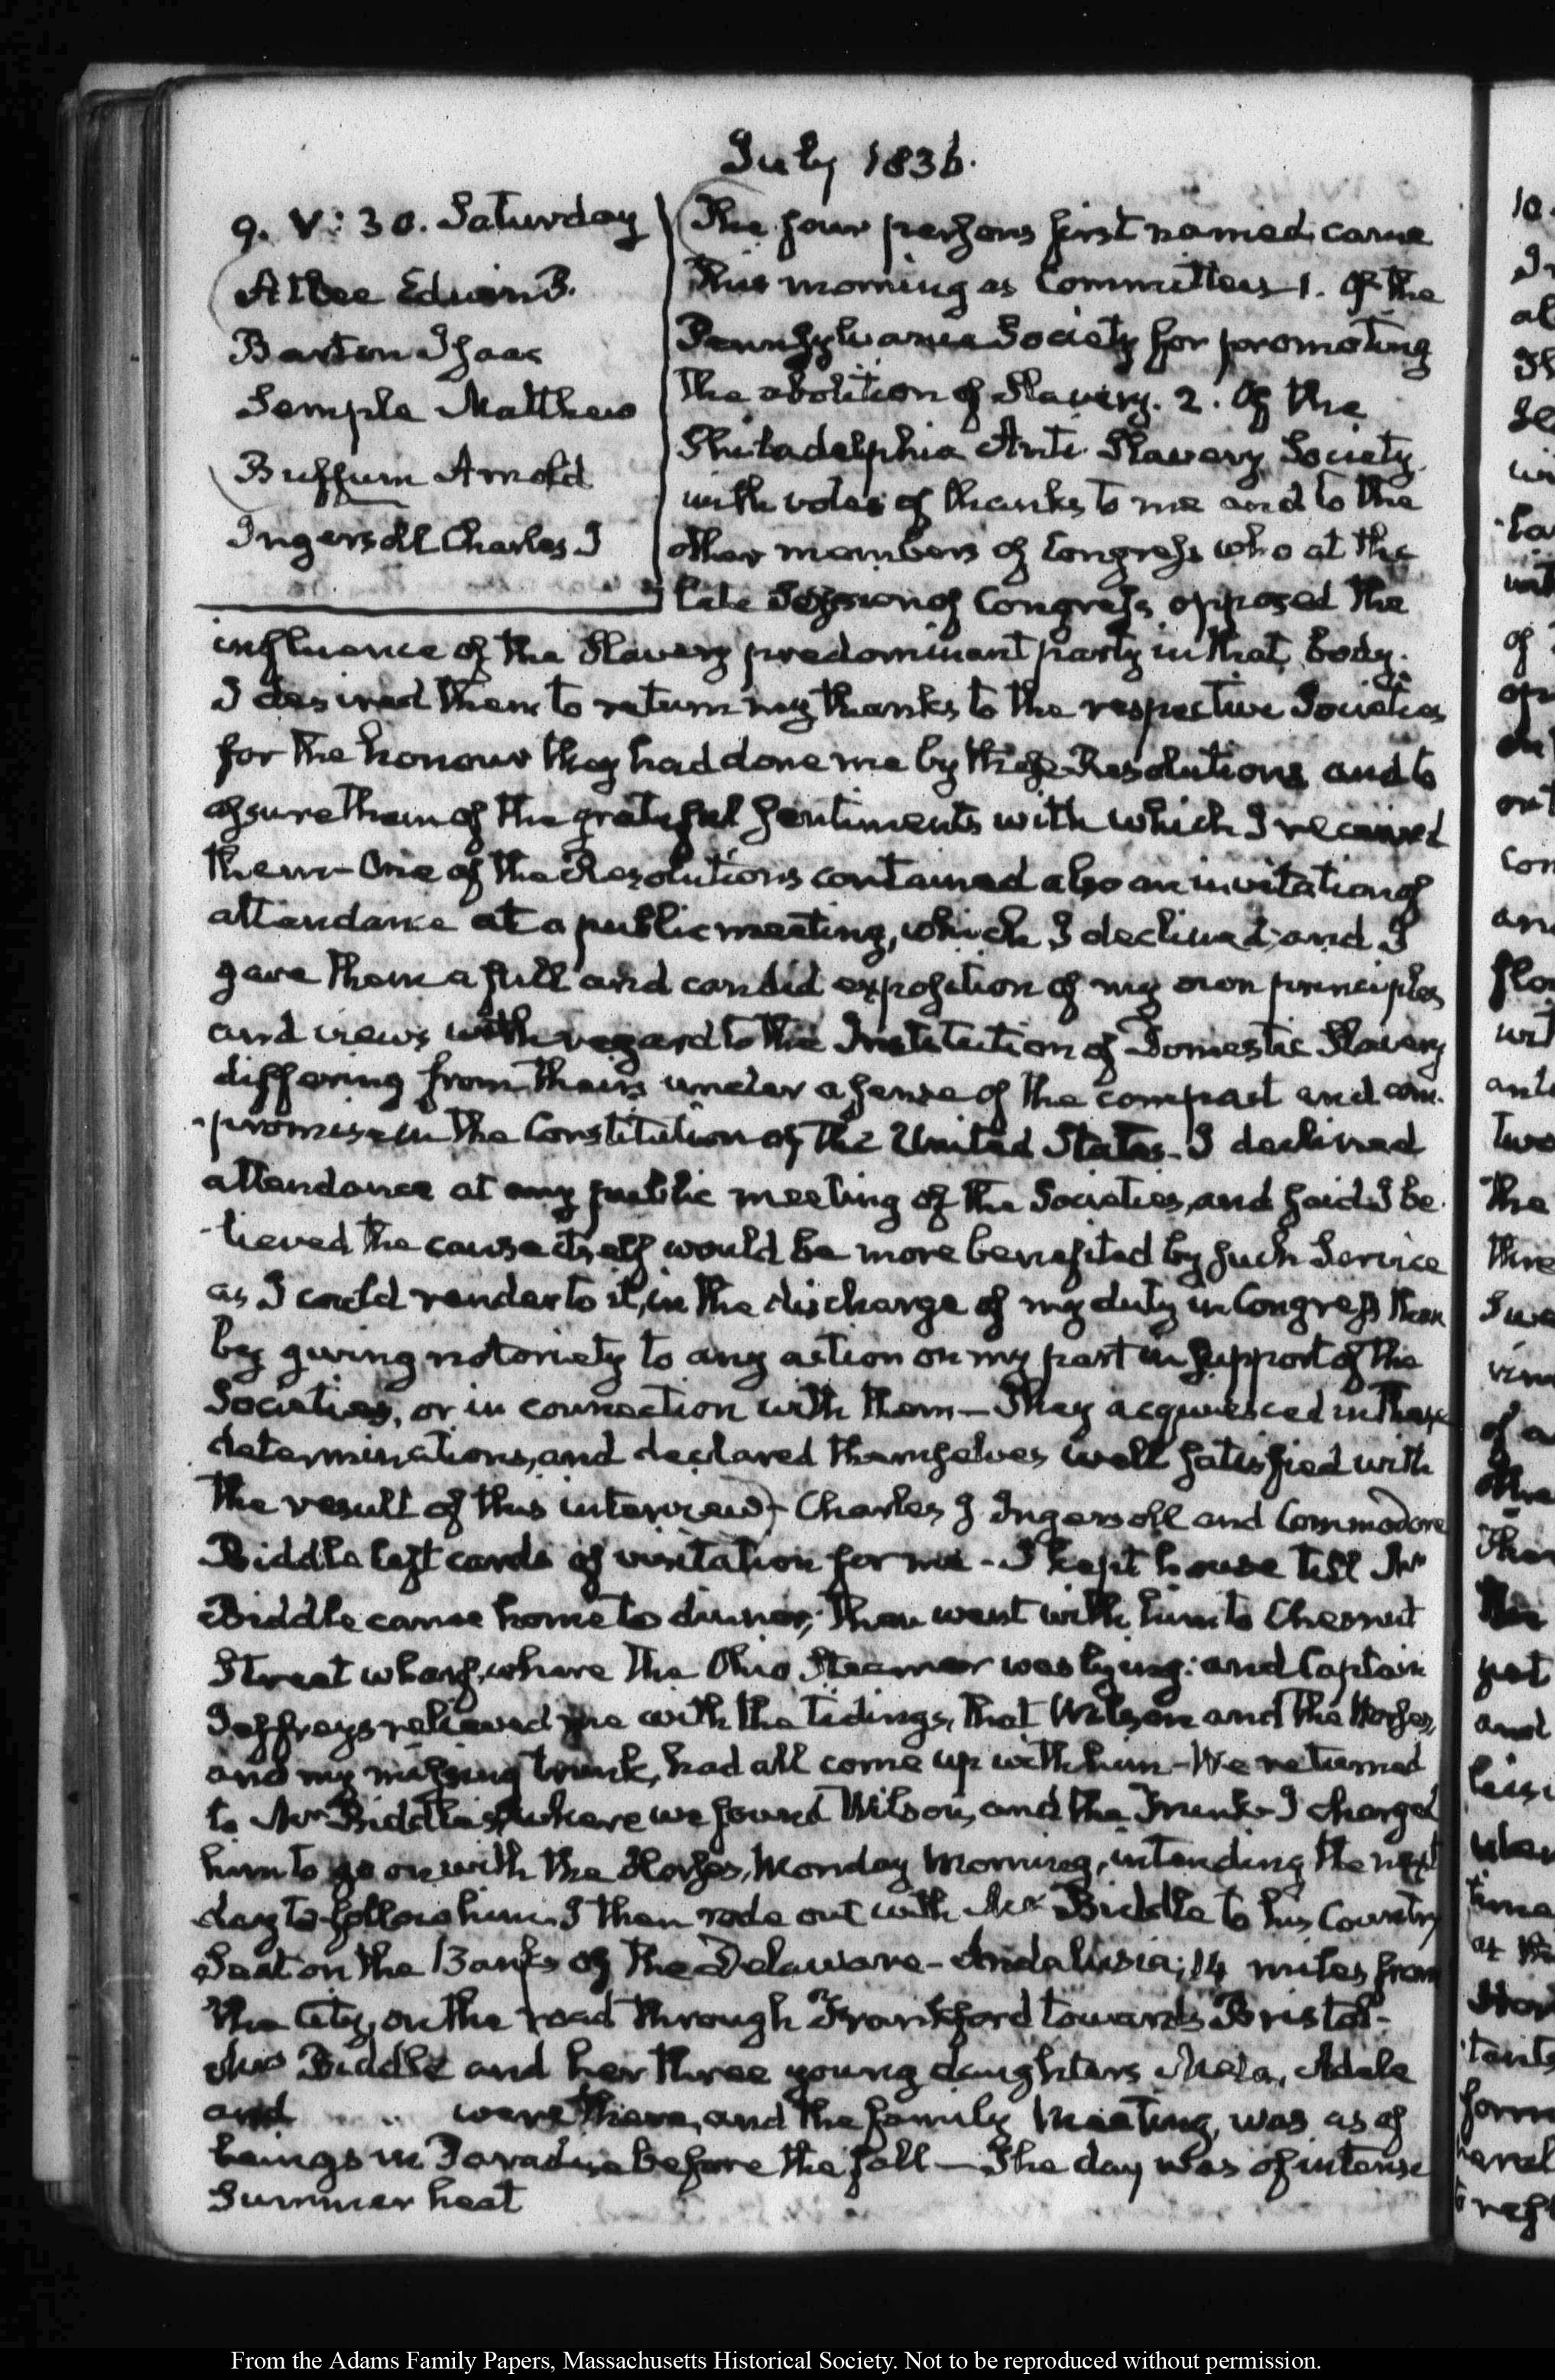 July 1836.
9. V: 30. Saturday
Atlee Edwin B.
Barton Isaac
Semple Matthew
Buffum Arnold
Ingersoll Charles J
The four persons first named, came
this morning as Committees 1. Of the
Pennsylvania Society for promoting
the abolition of Slavery. 2. Of the
Philadelphia Anti Slavery Society,
with votes of thanks to me and to the
other members of Congress who at the
late Session of Congress opposed the
influence of the Slavery predominant party in that body.
I desired them to return my thanks to the respective Societies
for the honour they had done me by these Resolutions and to
assure them of the grateful sentiments with which I received
them – One of the Resolutions contained also an invitation of
attendance at a public meeting, which I declined; and I
gave them a full and candid exposition of my own principles
and views with regard to the Institution of Domestic Slavery
differing from theirs under a sense of the compact and com-
-promise in the Constitution of the United States – I declined
attendance at any public meeting of the Societies, and said I be-
-lieved the cause itself would be more benefited by such Service
as I could render to it, in the discharge of my duty in Congress than
by giving notoriety to any action on my part in support of the
Societies, or in connection with them – They acquiesced in these
determinations, and declared themselves well satisfied with
the result of this interview – Charles J Ingersoll and Commodore
Biddle left cards of visitation for me – I kept house till Mr
Biddle came home to dinner; then went with him to Chesnut
Street wharf, where the Ohio Steamer was lying: and Captain
Jeffreys relieved me with the tidings, that Wilson and the Horses,
and my missing trunk, had all come up with him – We returned
to Mr Biddle's, where we found Wilson, and the Trunk – I charged
him to go on with the Horses, Monday Morning, intending the next
day to follow him. I then rode out with Mr Biddle to his Country
Seat on the Banks of the Delaware – Andalusia; 14 miles from
the City, on the road through Frankford towards Bristol –
Mrs Biddle and her three young daughters Meta, Adele
and were there, and the family meeting, was as of
beings in Paradise before the fall – The day was of intense
Summer heat
From the Adams Family Papers, Massachusetts Historical Society. Not to be reproduced without permission.